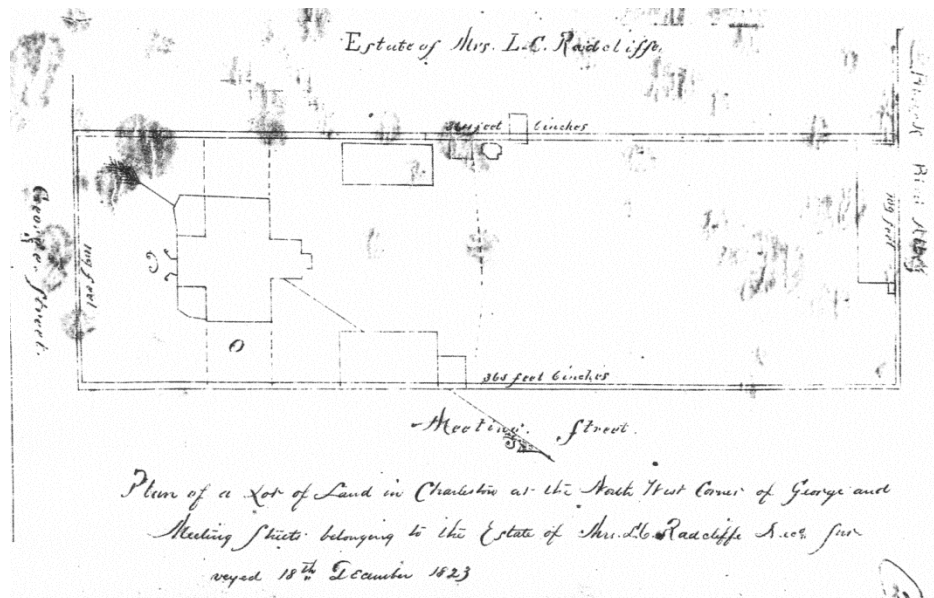 Estate of Mrs. L.C. Radcliffe.
feet 6 inches
George Street.
109 feet
109 feet
365 feet 6 inches
Meeting Street.
Plan of a Lot of Land in Charleston at the North West Corner of George and
Meeting Streets belonging to the Estate of Mrs. L.C. Radcliffe Decd. Sur-
veyed 18th December 1823